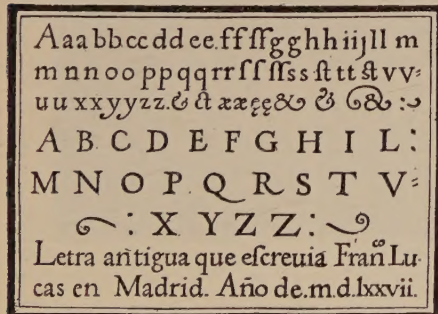 Aaabbccddee.ffſſgghhiijllm
mnnooppqqrrſſſſssſtttſtvv
uuxxyyzz.&ſtææęę&&&:
A B C D E F G H I L:
M N O P Q R S T V
: X Y Z Z :
Letra antigua que eſcreuia Franᵒ Lu-
cas en Madrid. Año de.m.d.lxxvii.